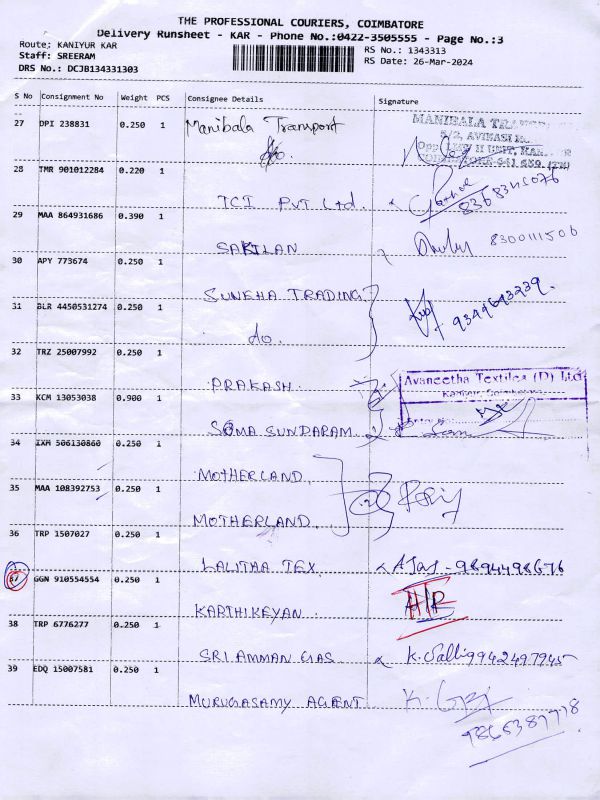 THE PROFESSIONAL COURIERS, COIMBATORE
Delivery Runsheet - KAR - Phone No.:0422-3505555 - Page No.:3
Route: KANIYUR KAR
Staff: SREERAM
DRS No.: DCJB134331303
RS No.: 1343313
RS Date: 26-Mar-2024
S No Consignment No Weight PCS Consignee Details Signature
27 DPI 238831 0.250 1 Manibala Transport
MANIBALA
do.
28 TMR 901012284 0.220 1
TCI PVT Ltd. 8368345076
29 MAA 864931686 0.390 1
SAKILAN 8300111506
30 APY 773674 0.250 1
SUNEHA TRADING
31 BLR 4450531274 0.250 1 9344643239.
do.
32 TRZ 25007992 0.250 1
PRAKASH
Avaneetha Textiles (P) Ltd
33 KCM 13053038 0.900 1
SOMA SUNDARAM
34 IXM 506130860 0.250 1
MOTHERLAND
35 MAA 108392753 0.250 1
MOTHERLAND
36 TRP 1507027 0.250 1
LALITHA TEX. 9894498676
37 GGN 910554554 0.250 1
KARTHIKEYAN
38 TRP 6776277 0.250 1
SRI AMMAN GAS K. Salli 9942497945
39 EDQ 15007581 0.250 1
MURUGASAMY AGENT
9865387778